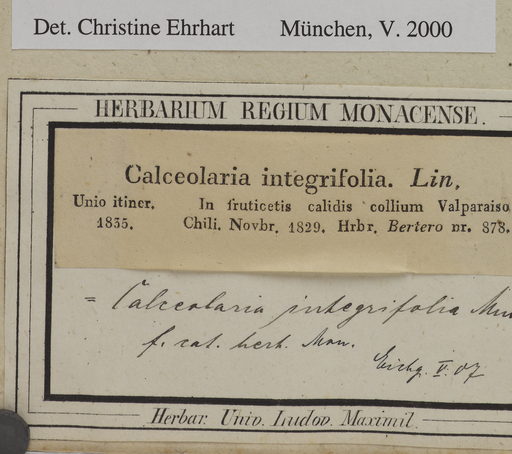 Det. Christine Ehrhart München, V. 2000
HERBARIUM REGIUM MONACENSE.
Calceolaria integrifolia. Lin.
Unio itiner. In fruticetis calidis collium Valparaiso
1835. Chili. Novbr. 1829. Hrbr. Bertero nr. 878.
= Calceolaria integrifolia
f. cat. herb. Mon.
V. 07
Herbar. Univ. Ludov. Maximil.